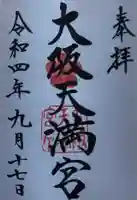 奉拝
大阪天満宮
令和四年九月十七日